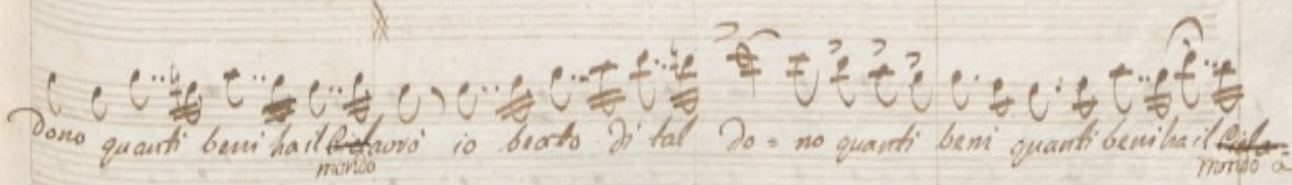 dono quanti beni ha il Ciel avrò io beato di tal do = no quanti beni quanti beni ha il Ciel a =
mondo mondo a